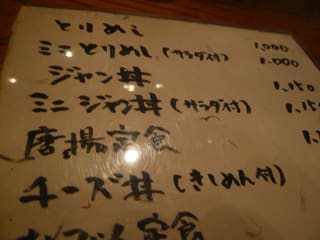 とりめし
ミニとりめし(サラダ付) 1,000
ジャン丼 1,000
ミニジャン丼(サラダ付) 1,150
唐揚定食 1,150
チーズ丼(きしめん付)
定食